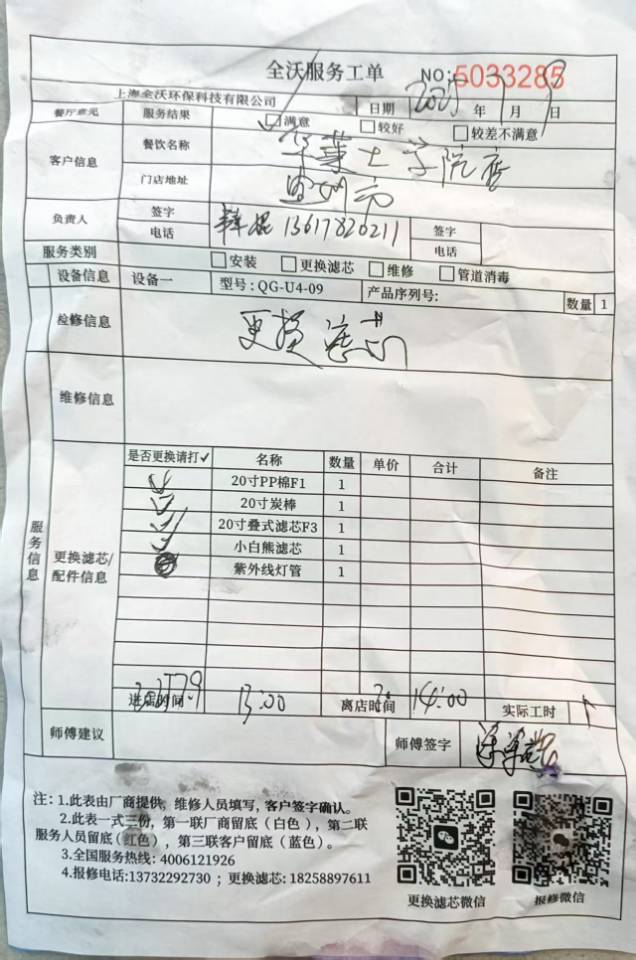 全沃服务工单
NO:5033285
上海全沃环保科技有限公司
日期 2025年 月 9日
餐厅意见 服务结果 ☑满意 □较好 □较差不满意
客户信息 餐饮名称 华莱士学院店
门店地址
负责人 签字 电话 13617820211 签字 电话
服务类别 □安装 □更换滤芯 □维修 □管道消毒
设备信息 设备一 型号:QG-U4-09 产品序列号: 数量 1
检修信息 更换滤芯
维修信息
服务信息
更换滤芯/配件信息
是否更换请打✓ 名称 数量 单价 合计 备注
✓ 20寸PP棉F1 1
✓ 20寸炭棒 1
✓ 20寸叠式滤芯F3 1
✓ 小白熊滤芯 1
紫外线灯管 1
进店时间 13:00 离店时间 14:00 实际工时 1
师傅建议 师傅签字
注: 1.此表由厂商提供, 维修人员填写, 客户签字确认。
2.此表一式三份, 第一联厂商留底(白色), 第二联
服务人员留底(红色), 第三联客户留底(蓝色)。
3.全国服务热线: 4006121926
4.报修电话:13732292730 ; 更换滤芯: 18258897611
更换滤芯微信 报修微信